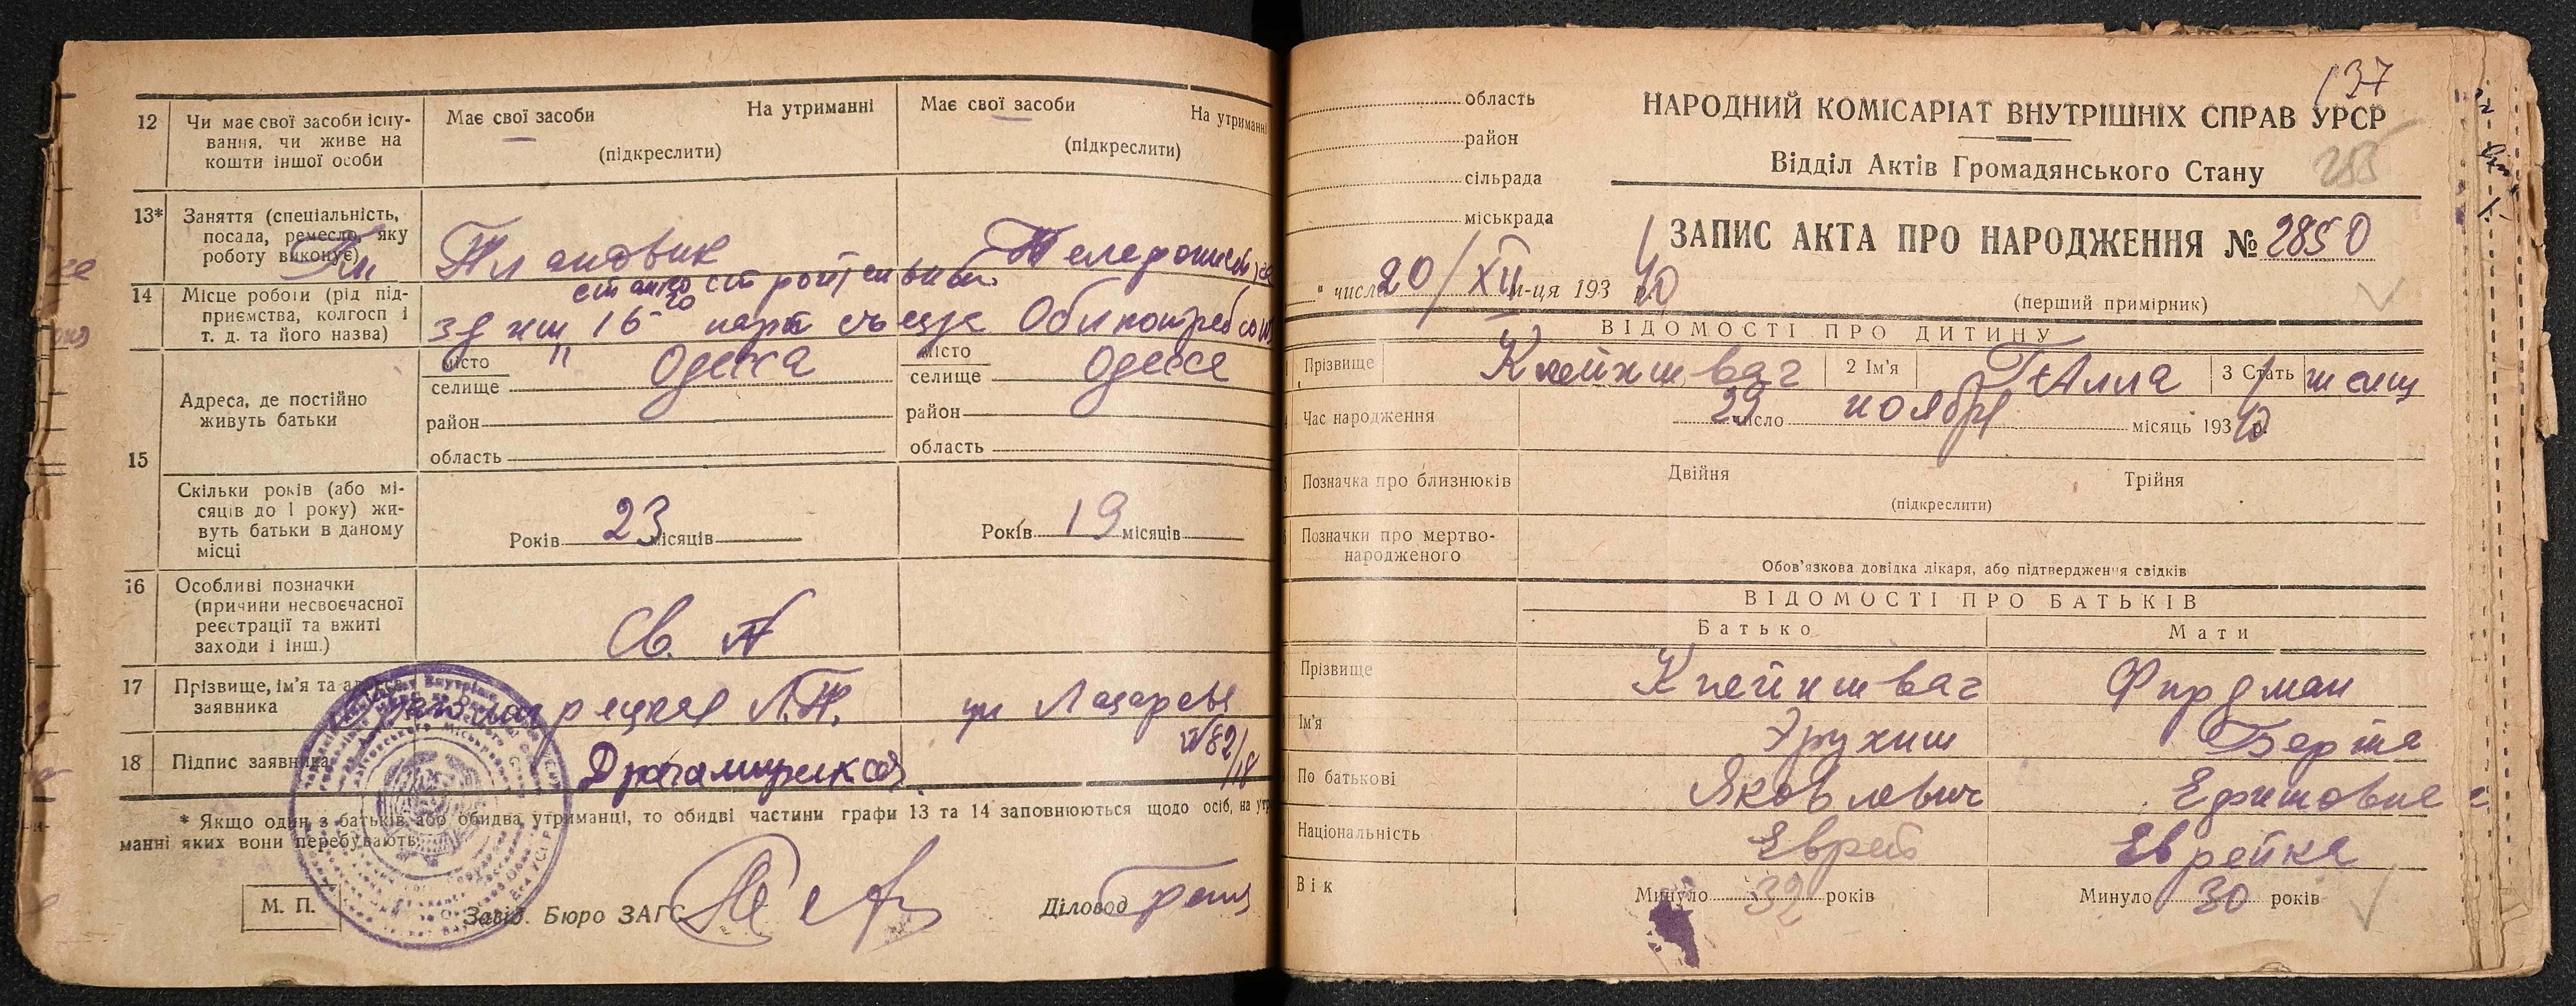 12 Чи має свої засоби існу-
вання, чи живе на
кошти іншої особи
Має свої засоби На утриманні
(підкреслити)
Має свої засоби На утриманні
(підкреслити)
13* Заняття (спеціальність,
посада, ремесло, яку
роботу виконує)
Плановик
Телефонистка
14 Місце роботи (рід під-
приємства, колгосп і
т. д. та його назва)
16
Одесса
15 Адреса, де постійно
живуть батьки
місто
селище
район
область
місто
селище Одесса
район
область
Скільки років (або мі-
сяців до 1 року) жи-
вуть батьки в даному
місці
Років 23 місяців
Років 19 місяців
16 Особливі позначки
(причини несвоєчасної
реєстрації та вжиті
заходи і інш.)
Св.
17 Прізвище, ім'я та адреса
заявника
ул Лазарева
№ 82/18
18 Підпис заявника
* Якщо один з батьків або обидва утриманці, то обидві частини графи 13 та 14 заповнюються щодо осіб, на утри
манні яких вони перебувають.
М. П.
Завід. Бюро ЗАГС
Діловод
137
область
район
сільрада
міськрада
НАРОДНИЙ КОМІСАРІАТ ВНУТРІШНІХ СПРАВ УРСР
285
Відділ Актів Громадянського Стану
ЗАПИС АКТА ПРО НАРОДЖЕННЯ № 2850
„ числа 20/XII м-ця 193 40 р.
(перший примірник)
ВІДОМОСТІ ПРО ДИТИНУ
Прізвище Клейншваг 2 Ім'я Алла 3 Стать женщ
Час народження 29 число ноября місяць 193 40 р.
Позначка про близнюків Двійня Трійня
(підкреслити)
Позначки про мертво-
народженого
Обов'язкова довідка лікаря, або підтвердження свідків
ВІДОМОСТІ ПРО БАТЬКІВ
Батько Мати
Прізвище Клейншваг Фирдман
Ім'я Эрухим Берта
По батькові Яковлевич Ефимовна
Національність Еврей Еврейка
Вік Минуло 32 років Минуло 30 років